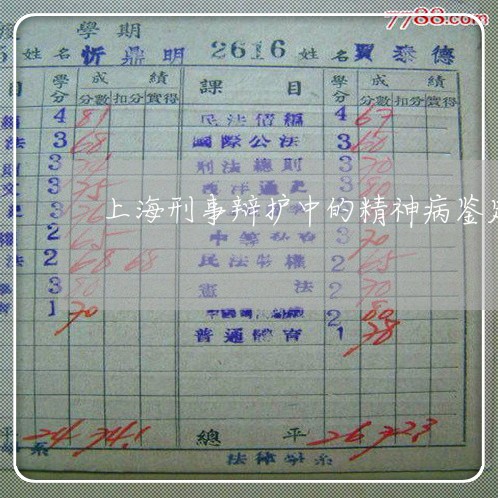 7788.com
學期
姓名 忻鼎明 2616 姓名 賈泰德
目 學分 成績 課目 學分 成績
分數 扣分 實得 分數 扣分 實得
4 81 民法債編 4 67
法 3 68 國際公法 3 60
3 刑法總則 3 70
3 75 西洋通史 3 80
上海刑事辩护中的精神病鉴定
2 65 3 70
法 2 68 68 民法物權 2 65
3 80 憲法 2 70
育 1 70 2 80
普通體育 1 78
平 24 74.1 總平 26 72.3
系 法律學系